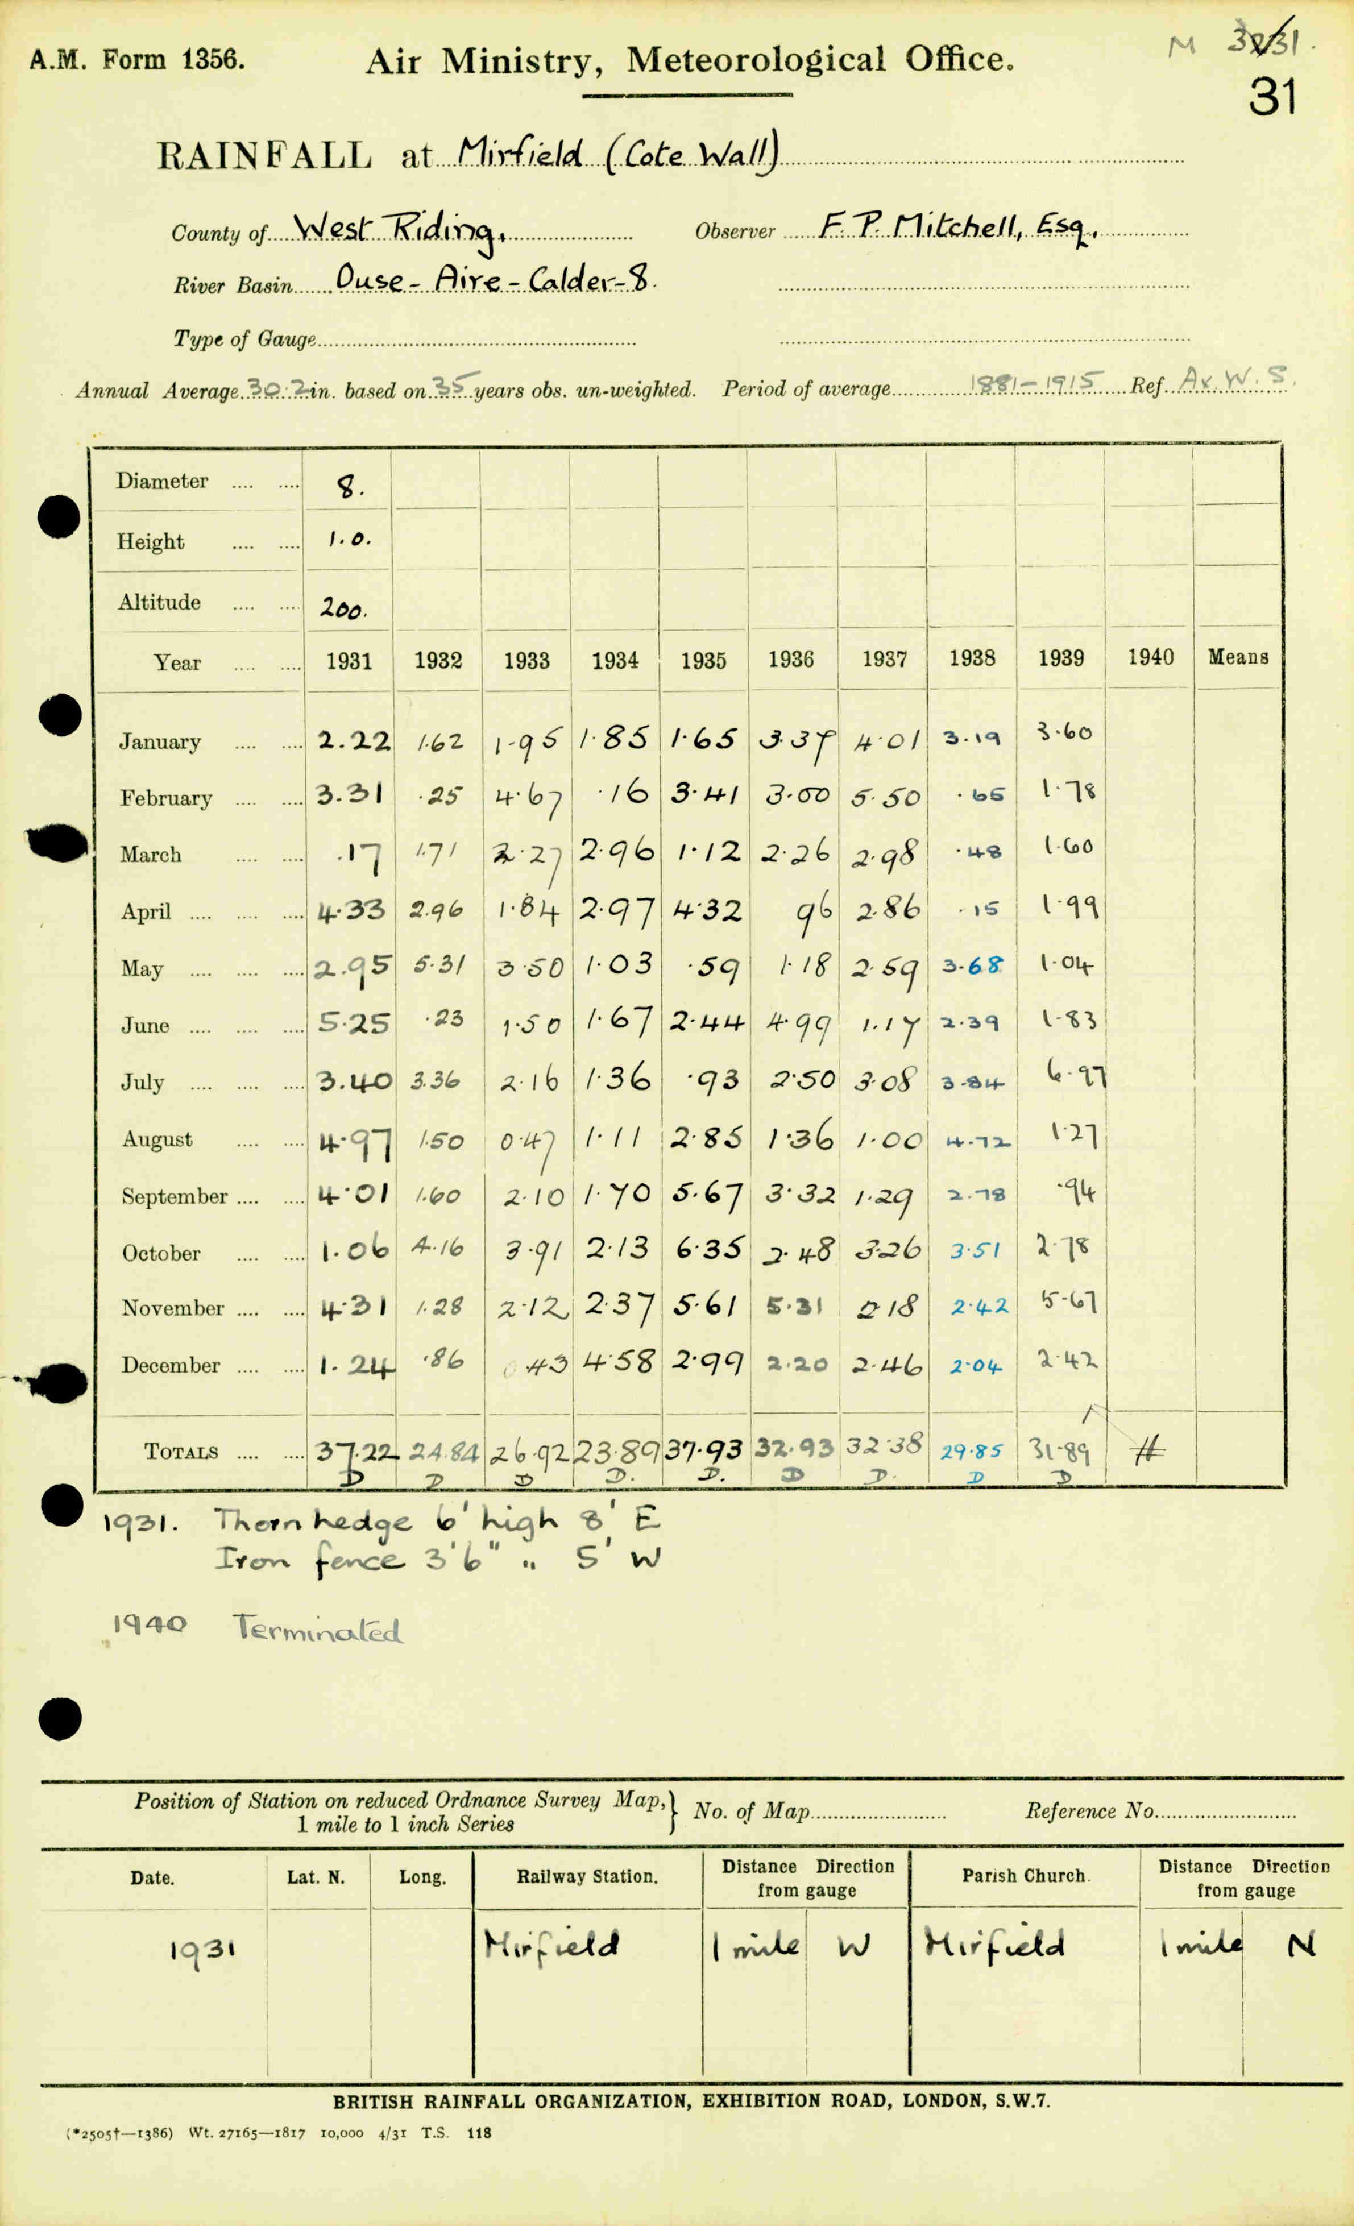 A.M. Form 1356. Air Ministry, Meteorological Office. M
31
RAINFALL at Mirfield (Cote Wall)
County of West Riding, Observer F. P. Mitchell, Esq.
River Basin Ouse - Aire - Calder - 8.
Type of Gauge
Annual Average 30.2 in. based on 35 years obs. un-weighted. Period of average 1881-1915 Ref. Av. W. S.
Diameter 8.
Height 1.0.
Altitude 200.
Year 1931 1932 1933 1934 1935 1936 1937 1938 1939 1940 Means
January 2.22 1.62 1.95 1.85 1.65 3.37 4.01 3.19 3.60
February 3.31 .25 4.67 .16 3.41 3.00 5.50 .65 1.78
March .17 1.71 2.27 2.96 1.12 2.26 2.98 .48 1.60
April 4.33 2.96 1.84 2.97 4.32 96 2.86 .15 1.99
May 2.95 5.31 3.50 1.03 .59 1.18 2.59 3.68 1.04
June 5.25 .23 1.50 1.67 2.44 4.99 1.17 2.39 1.83
July 3.40 3.36 2.16 1.36 .93 2.50 3.08 3.84 6.97
August 4.97 1.50 0.47 1.11 2.85 1.36 1.00 4.72 1.27
September 4.01 1.60 2.10 1.70 5.67 3.32 1.29 2.78 .94
October 1.06 4.16 3.91 2.13 6.35 2.48 3.26 3.51 2.78
November 4.31 1.28 2.12 2.37 5.61 5.31 2.18 2.42 5.67
December 1.24 .86 0.43 4.58 2.99 2.20 2.46 2.04 2.42
TOTALS 37.22 24.84 26.92 23.89 37.93 32.93 32.38 29.85 31.89 #
D D D D. D. D D. D D
1931. Thorn hedge 6' high 8' E
Iron fence 3'6" " 5' W
1940 Terminated
Position of Station on reduced Ordnance Survey Map, } No. of Map Reference No.
1 mile to 1 inch Series
Date. Lat. N. Long. Railway Station. Distance Direction from gauge Parish Church. Distance Direction from gauge
1931 Mirfield 1 mile W Mirfield 1 mile N
BRITISH RAINFALL ORGANIZATION, EXHIBITION ROAD, LONDON, S.W.7.
(*2505†—1386) Wt. 27165—1817 10,000 4/31 T.S. 118